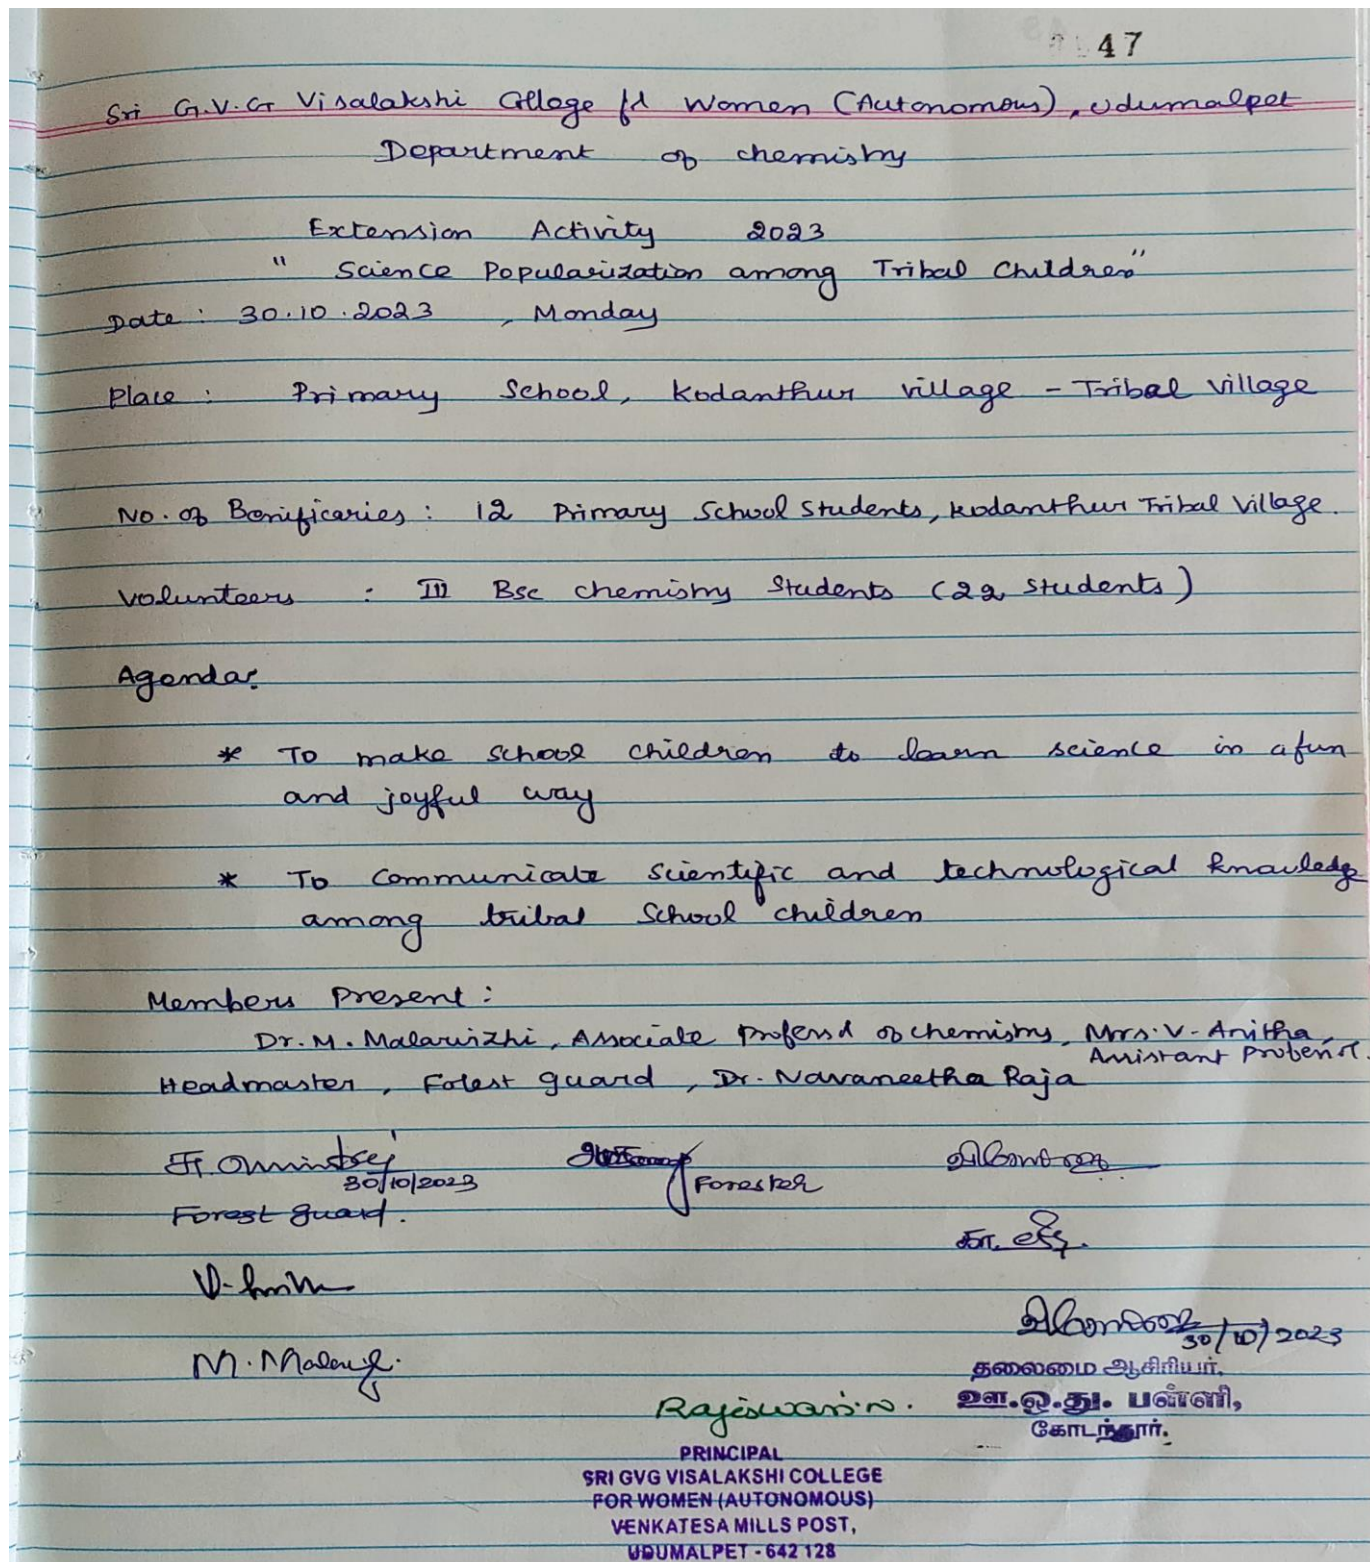 47
Sri G.V.G Visalakshi College for Women (Autonomous), Udumalpet
Department of chemistry
Extension Activity 2023
" Science Popularization among Tribal Children"
Date : 30.10.2023 , Monday
Place : Primary School, Kodanthur village - Tribal village
No. of Benificaries : 12 Primary School Students, Kodanthur Tribal Village.
Volunteers : III Bsc chemistry Students (22 students)
Agenda:
* To make school children to learn science in a fun
and joyful way
* To communicate scientific and technological knowledge
among tribal School children
Members Present :
Dr. M. Malarvizhi, Associate Professor of chemistry, Mrs. V. Anitha,
Assistant Professor.
Headmaster, Forest guard, Dr. Navaneetha Raja
30/10/2023
Forester
Forest guard.
கா.
V.
30/10/2023
M. Malar
தலைமை ஆசிரியர்,
Rajeswari.N.
ஊ.ஒ.து. பள்ளி,
கோடந்தூர்.
PRINCIPAL
SRI GVG VISALAKSHI COLLEGE
FOR WOMEN (AUTONOMOUS)
VENKATESA MILLS POST,
UDUMALPET - 642 128